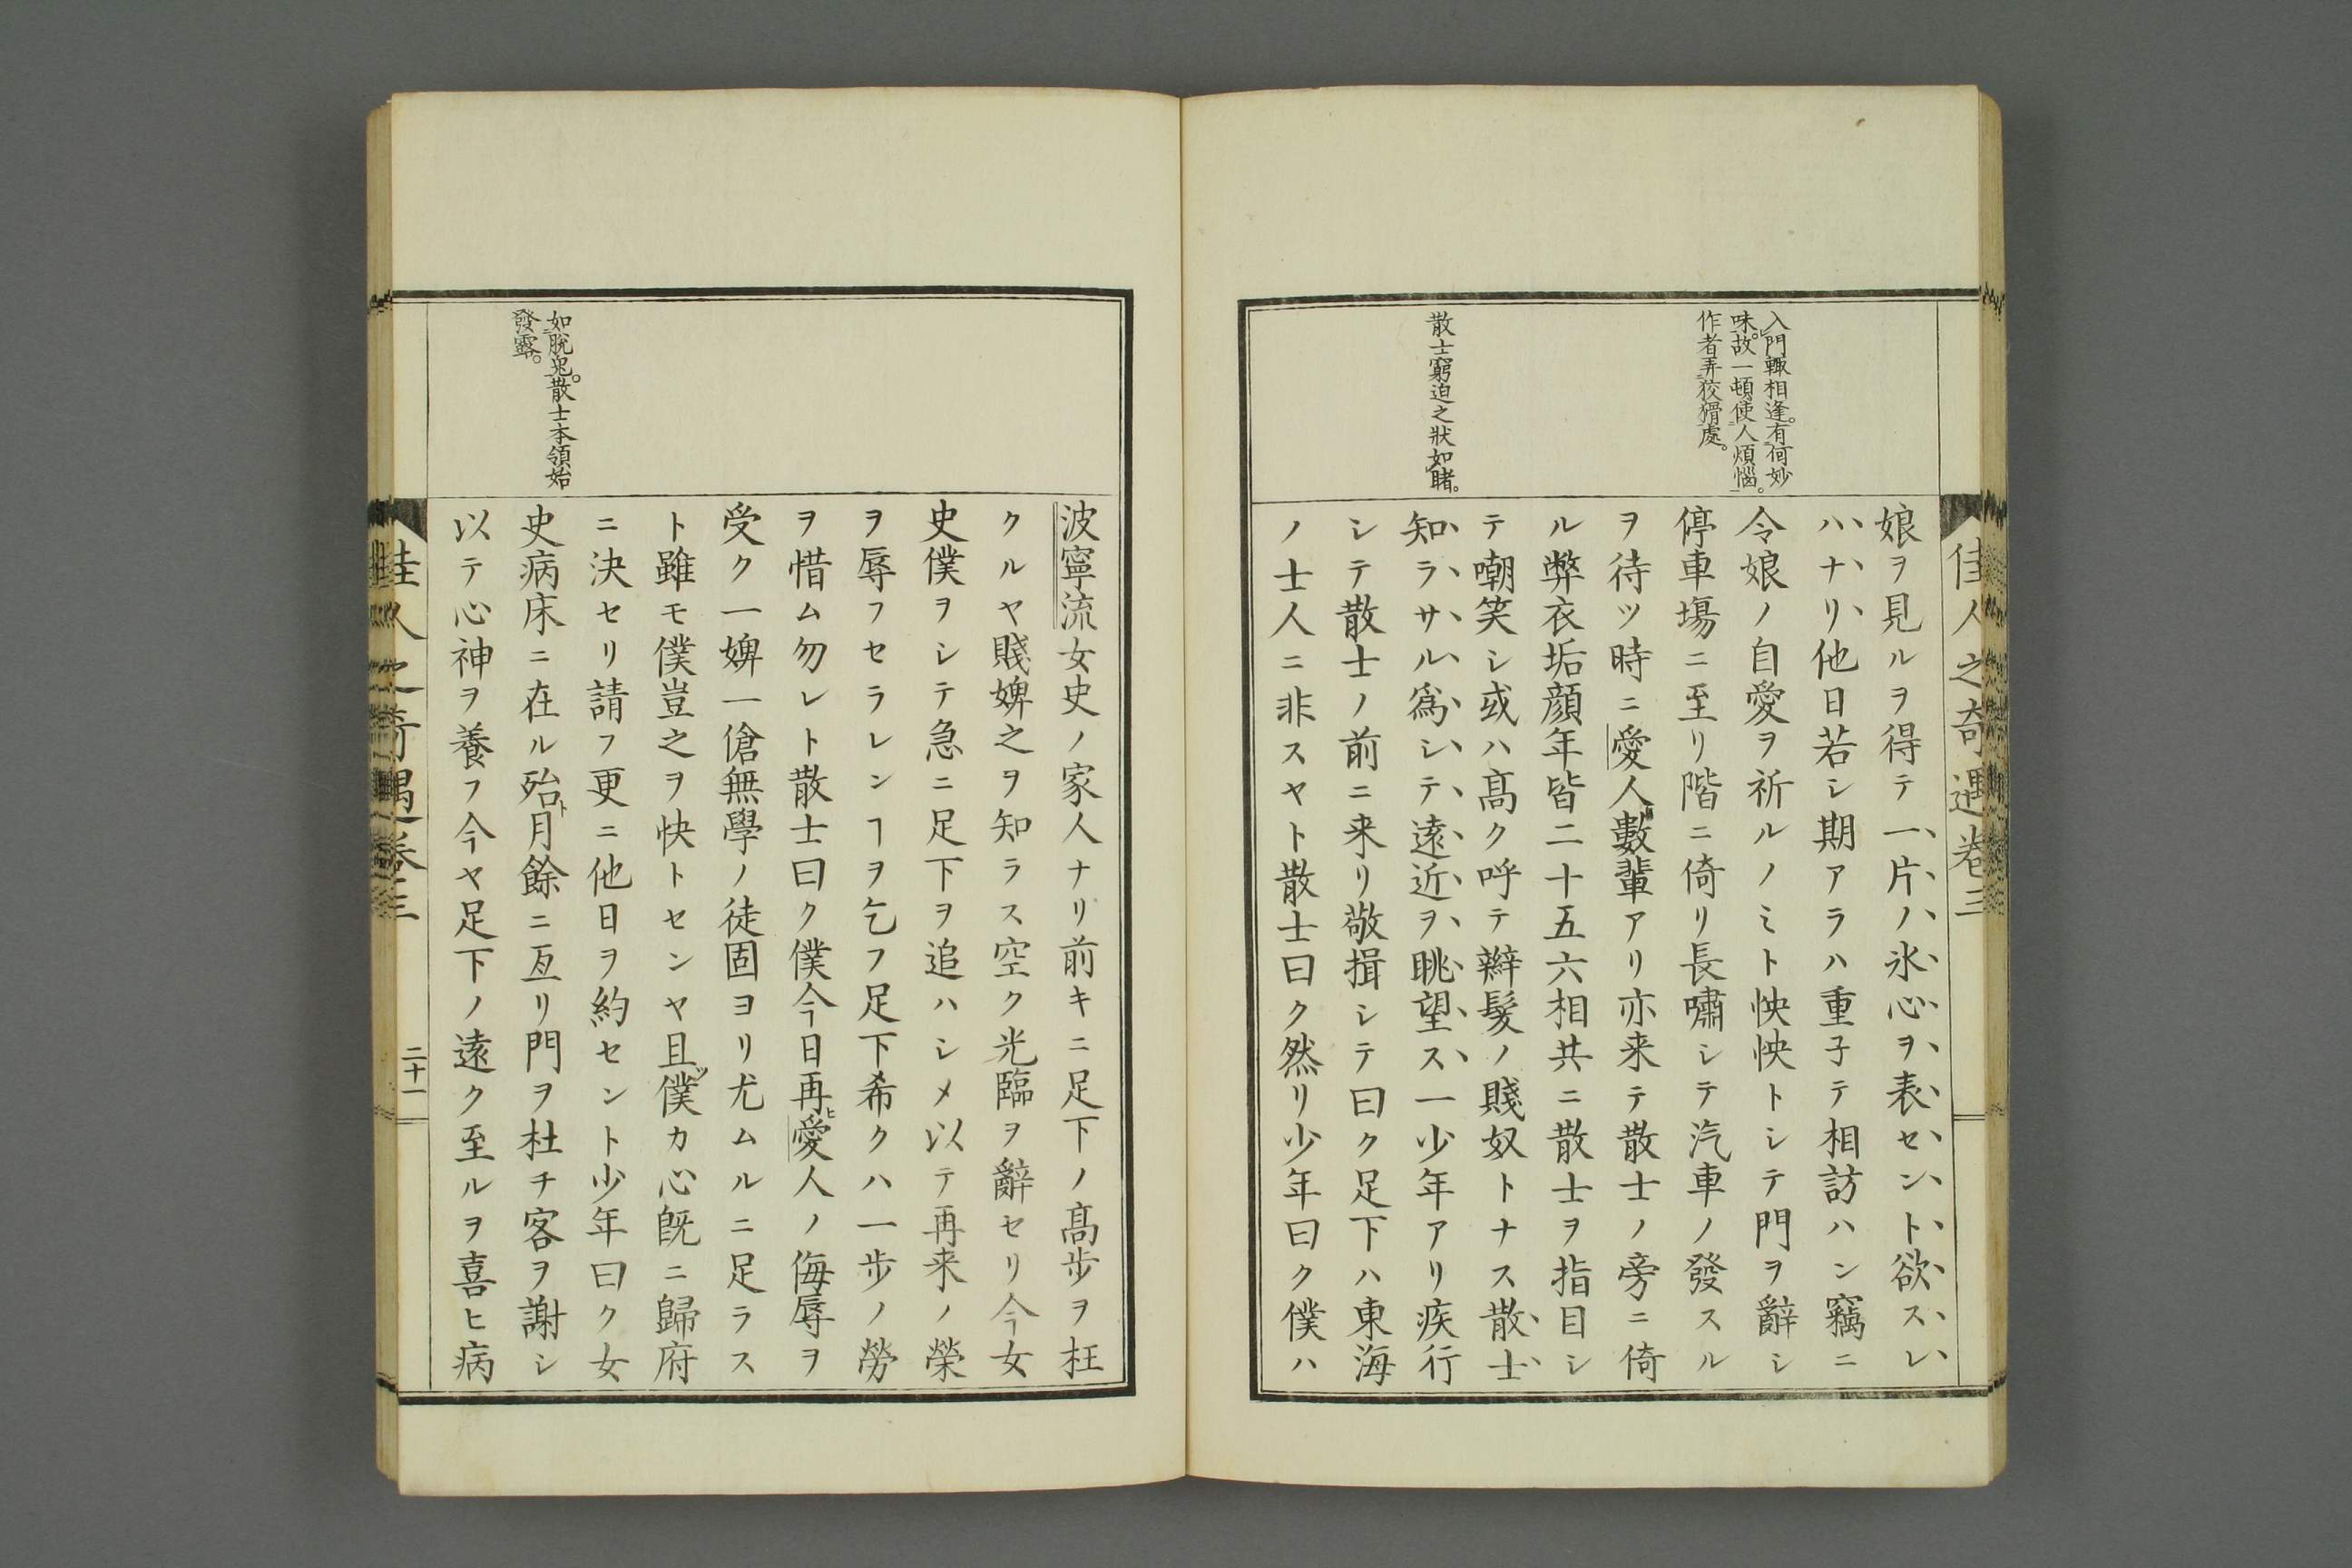 佳人之奇遇卷三
入門輙相逢。有何妙
味。故一頓使人煩惱。
作者弄狡猾處。
散士窮迫之狀如睹。
娘ヲ見ルヲ得テ一片ノ氷心ヲ表セント欲スレ
ハナリ他日若シ期アラハ重子テ相訪ハン竊ニ
令娘ノ自愛ヲ祈ルノミト怏怏トシテ門ヲ辭シ
停車塲ニ至リ階ニ倚リ長嘯シテ汽車ノ發スル
ヲ待ツ時ニ愛人數輩アリ亦来テ散士ノ旁ニ倚
ル弊衣垢顔年皆二十五六相共ニ散士ヲ指目シ
テ嘲笑シ或ハ髙ク呼テ辮髪ノ賤奴トナス散士
知ラサル爲シテ遠近ヲ眺望ス一少年アリ疾行
シテ散士ノ前ニ来リ敬揖シテ曰ク足下ハ東海
ノ士人ニ非スヤト散士曰ク然リ少年曰ク僕ハ
如脫兎。散士本領始
發露。
波寧流女史ノ家人ナリ前キニ足下ノ髙歩ヲ枉
クルヤ賤婢之ヲ知ラス空ク光臨ヲ辭セリ今女
史僕ヲシテ急ニ足下ヲ追ハシメ以テ再来ノ榮
ヲ辱フセラレンヿヲ乞フ足下希クハ一歩ノ勞
ヲ惜ム勿レト散士曰ク僕今日再ヒ愛人ノ侮辱ヲ
受ク一婢一傖無學ノ徒固ヨリ尤ムルニ足ラス
ト雖モ僕豈之ヲ快トセンヤ且ツ僕カ心旣ニ歸府
ニ決セリ請フ更ニ他日ヲ約セント少年曰ク女
史病床ニ在ル殆ト月餘ニ亙リ門ヲ杜チ客ヲ謝シ
以テ心神ヲ養フ今ヤ足下ノ遠ク至ルヲ喜ヒ病
佳人之奇遇卷三
二十一